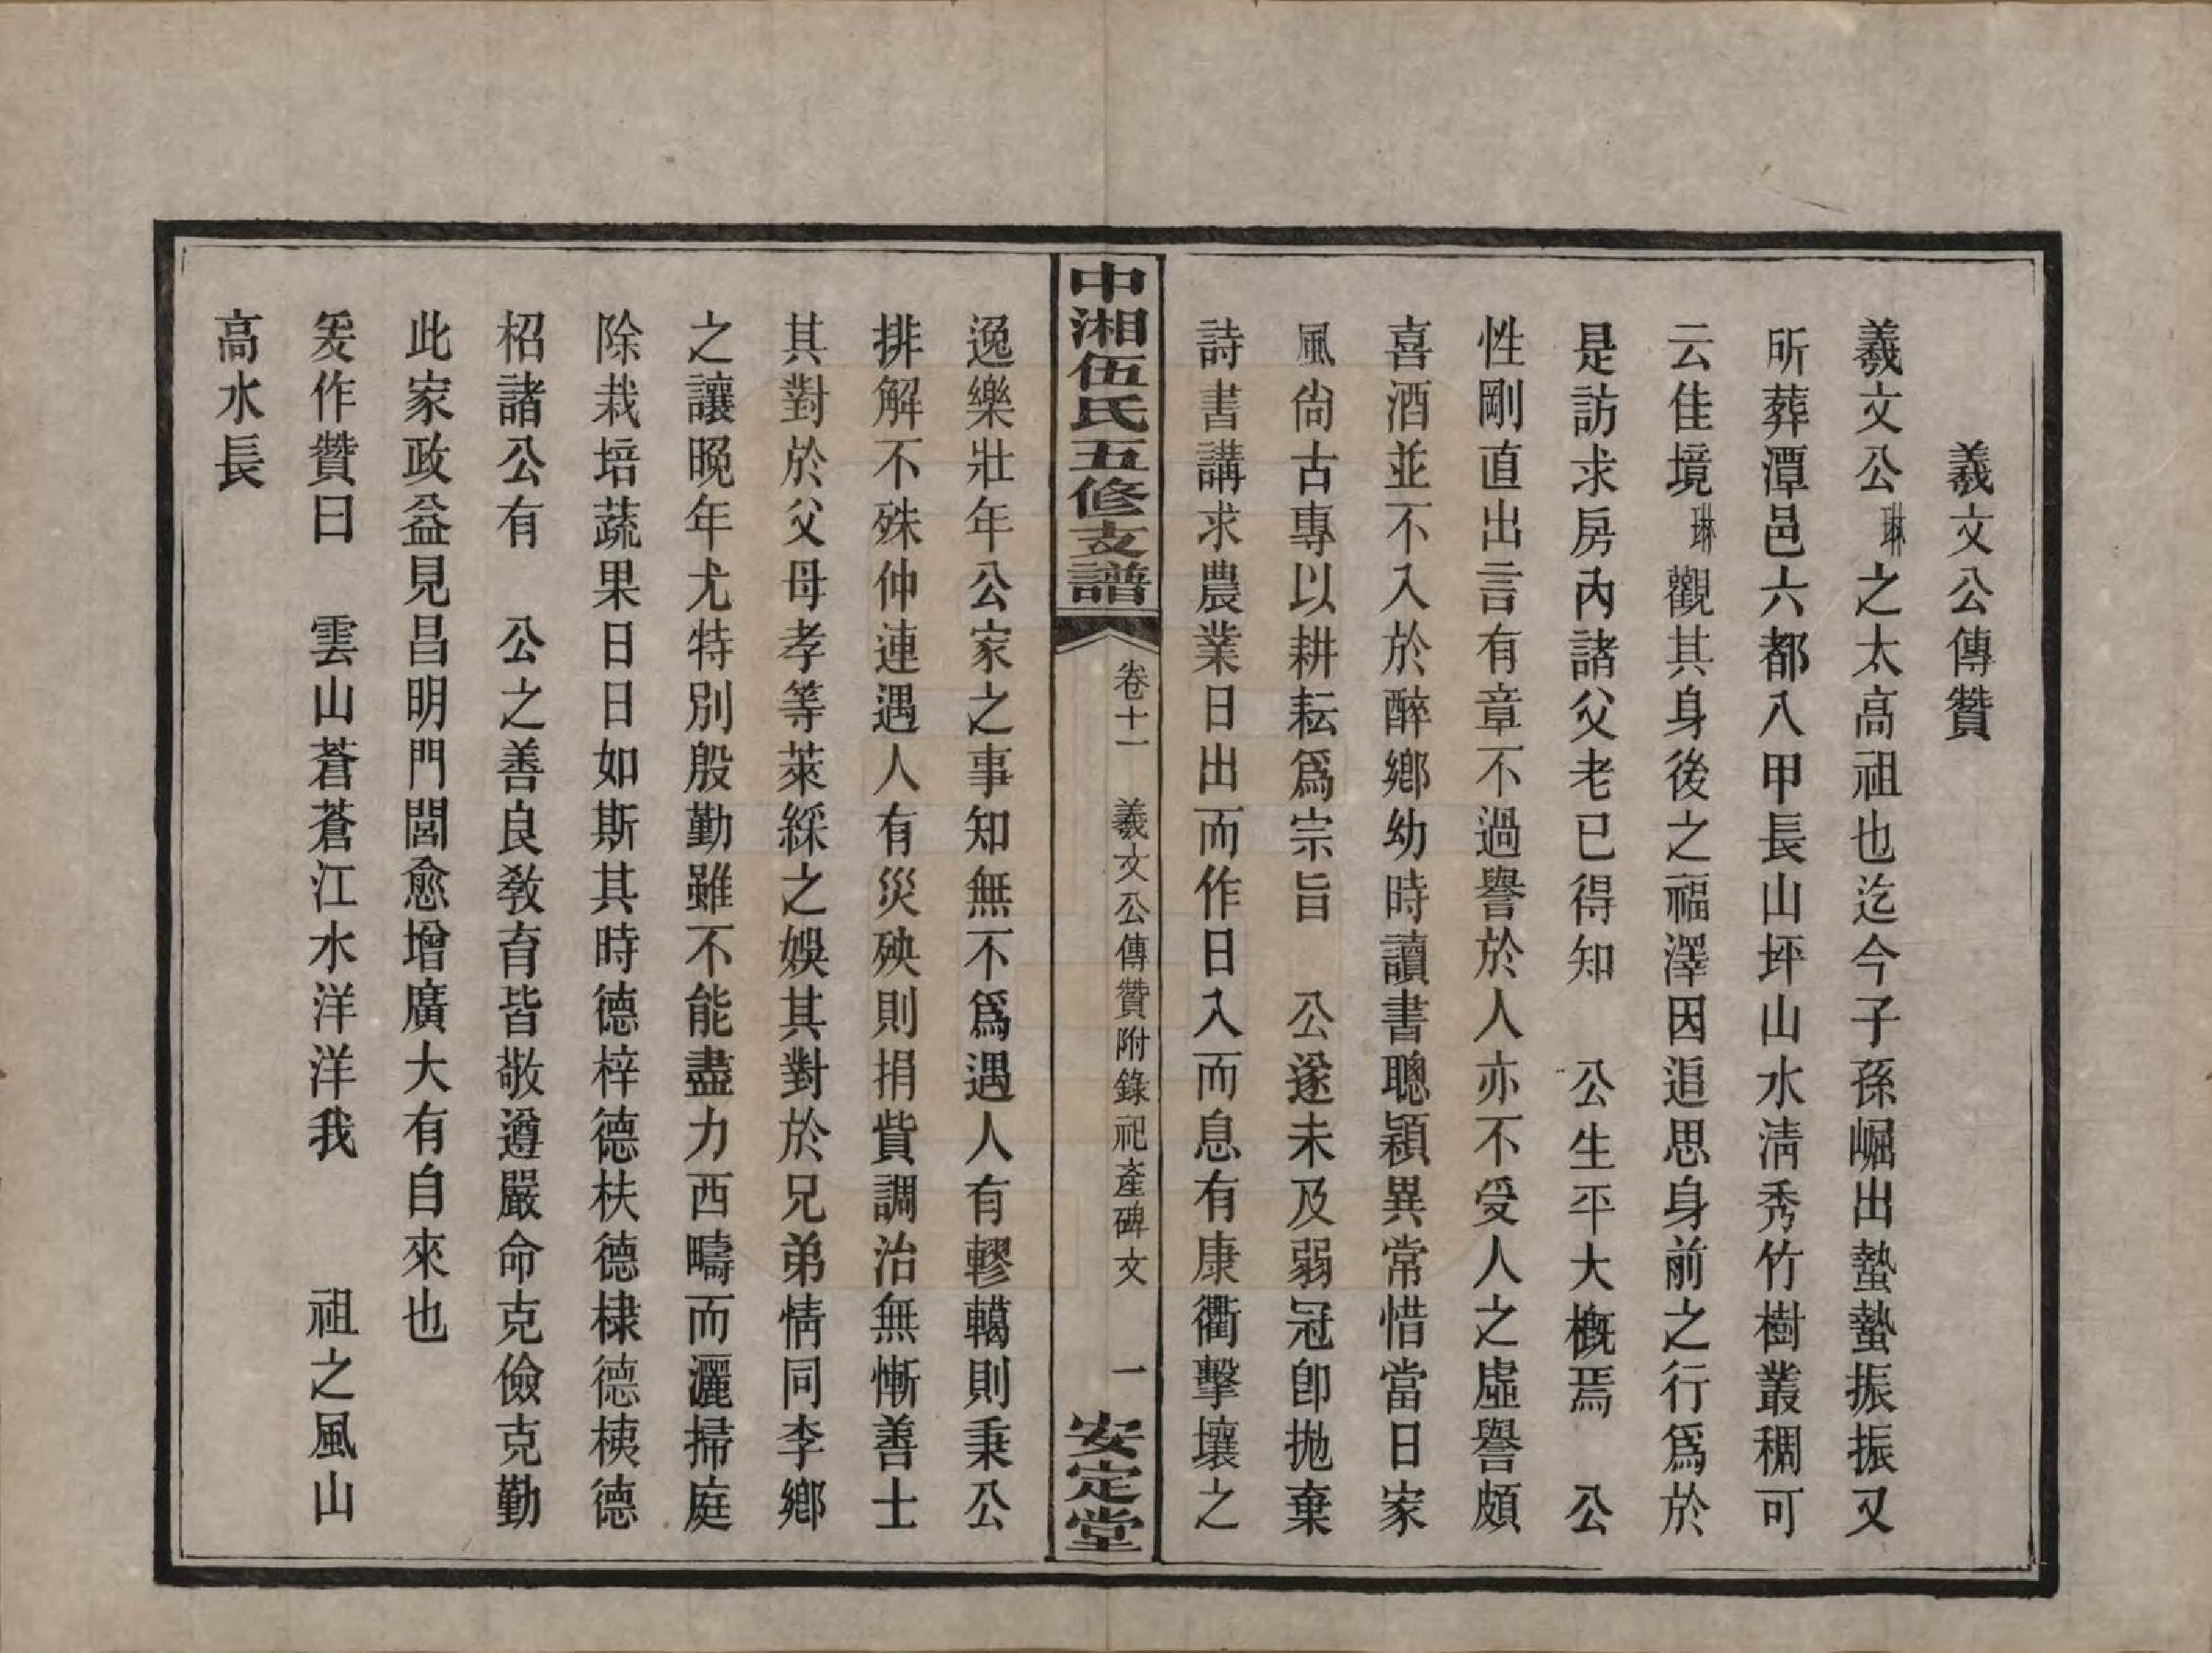 羲文公傳贊
羲文公琳之太高祖也迄今子孫崛出蟄蟄振振又
所葬潭邑六都八甲長山坪山水淸秀竹樹叢稠可
云佳境琳觀其身後之福澤因追思身前之行爲於
是訪求房內諸父老已得知　公生平大槪焉　公
性剛直出言有章不過譽於人亦不受人之虛譽頗
喜酒並不入於醉鄉幼時讀書聰穎異常惜當日家
風尙古專以耕耘爲宗旨　公遂未及弱冠卽抛棄
詩書講求農業日出而作日入而息有康衢擊壤之
中湘伍氏五修支譜　卷十一　羲文公傳贊附錄祀產碑文　一　安定堂
逸樂壯年公家之事知無不爲遇人有轇轕則秉公
排解不殊仲連遇人有災殃則捐貲調治無慚善士
其對於父母孝等萊綵之娛其對於兄弟情同李鄉
之讓晚年尤特別殷勤雖不能盡力西疇而灑掃庭
除栽培蔬果日日如斯其時德梓德扶德棣德桋德
柖諸公有　公之善良敎育皆敬遵嚴命克儉克勤
此家政益見昌明門閭愈增廣大有自來也
爰作贊曰　雲山蒼蒼江水洋洋我　祖之風山
高水長